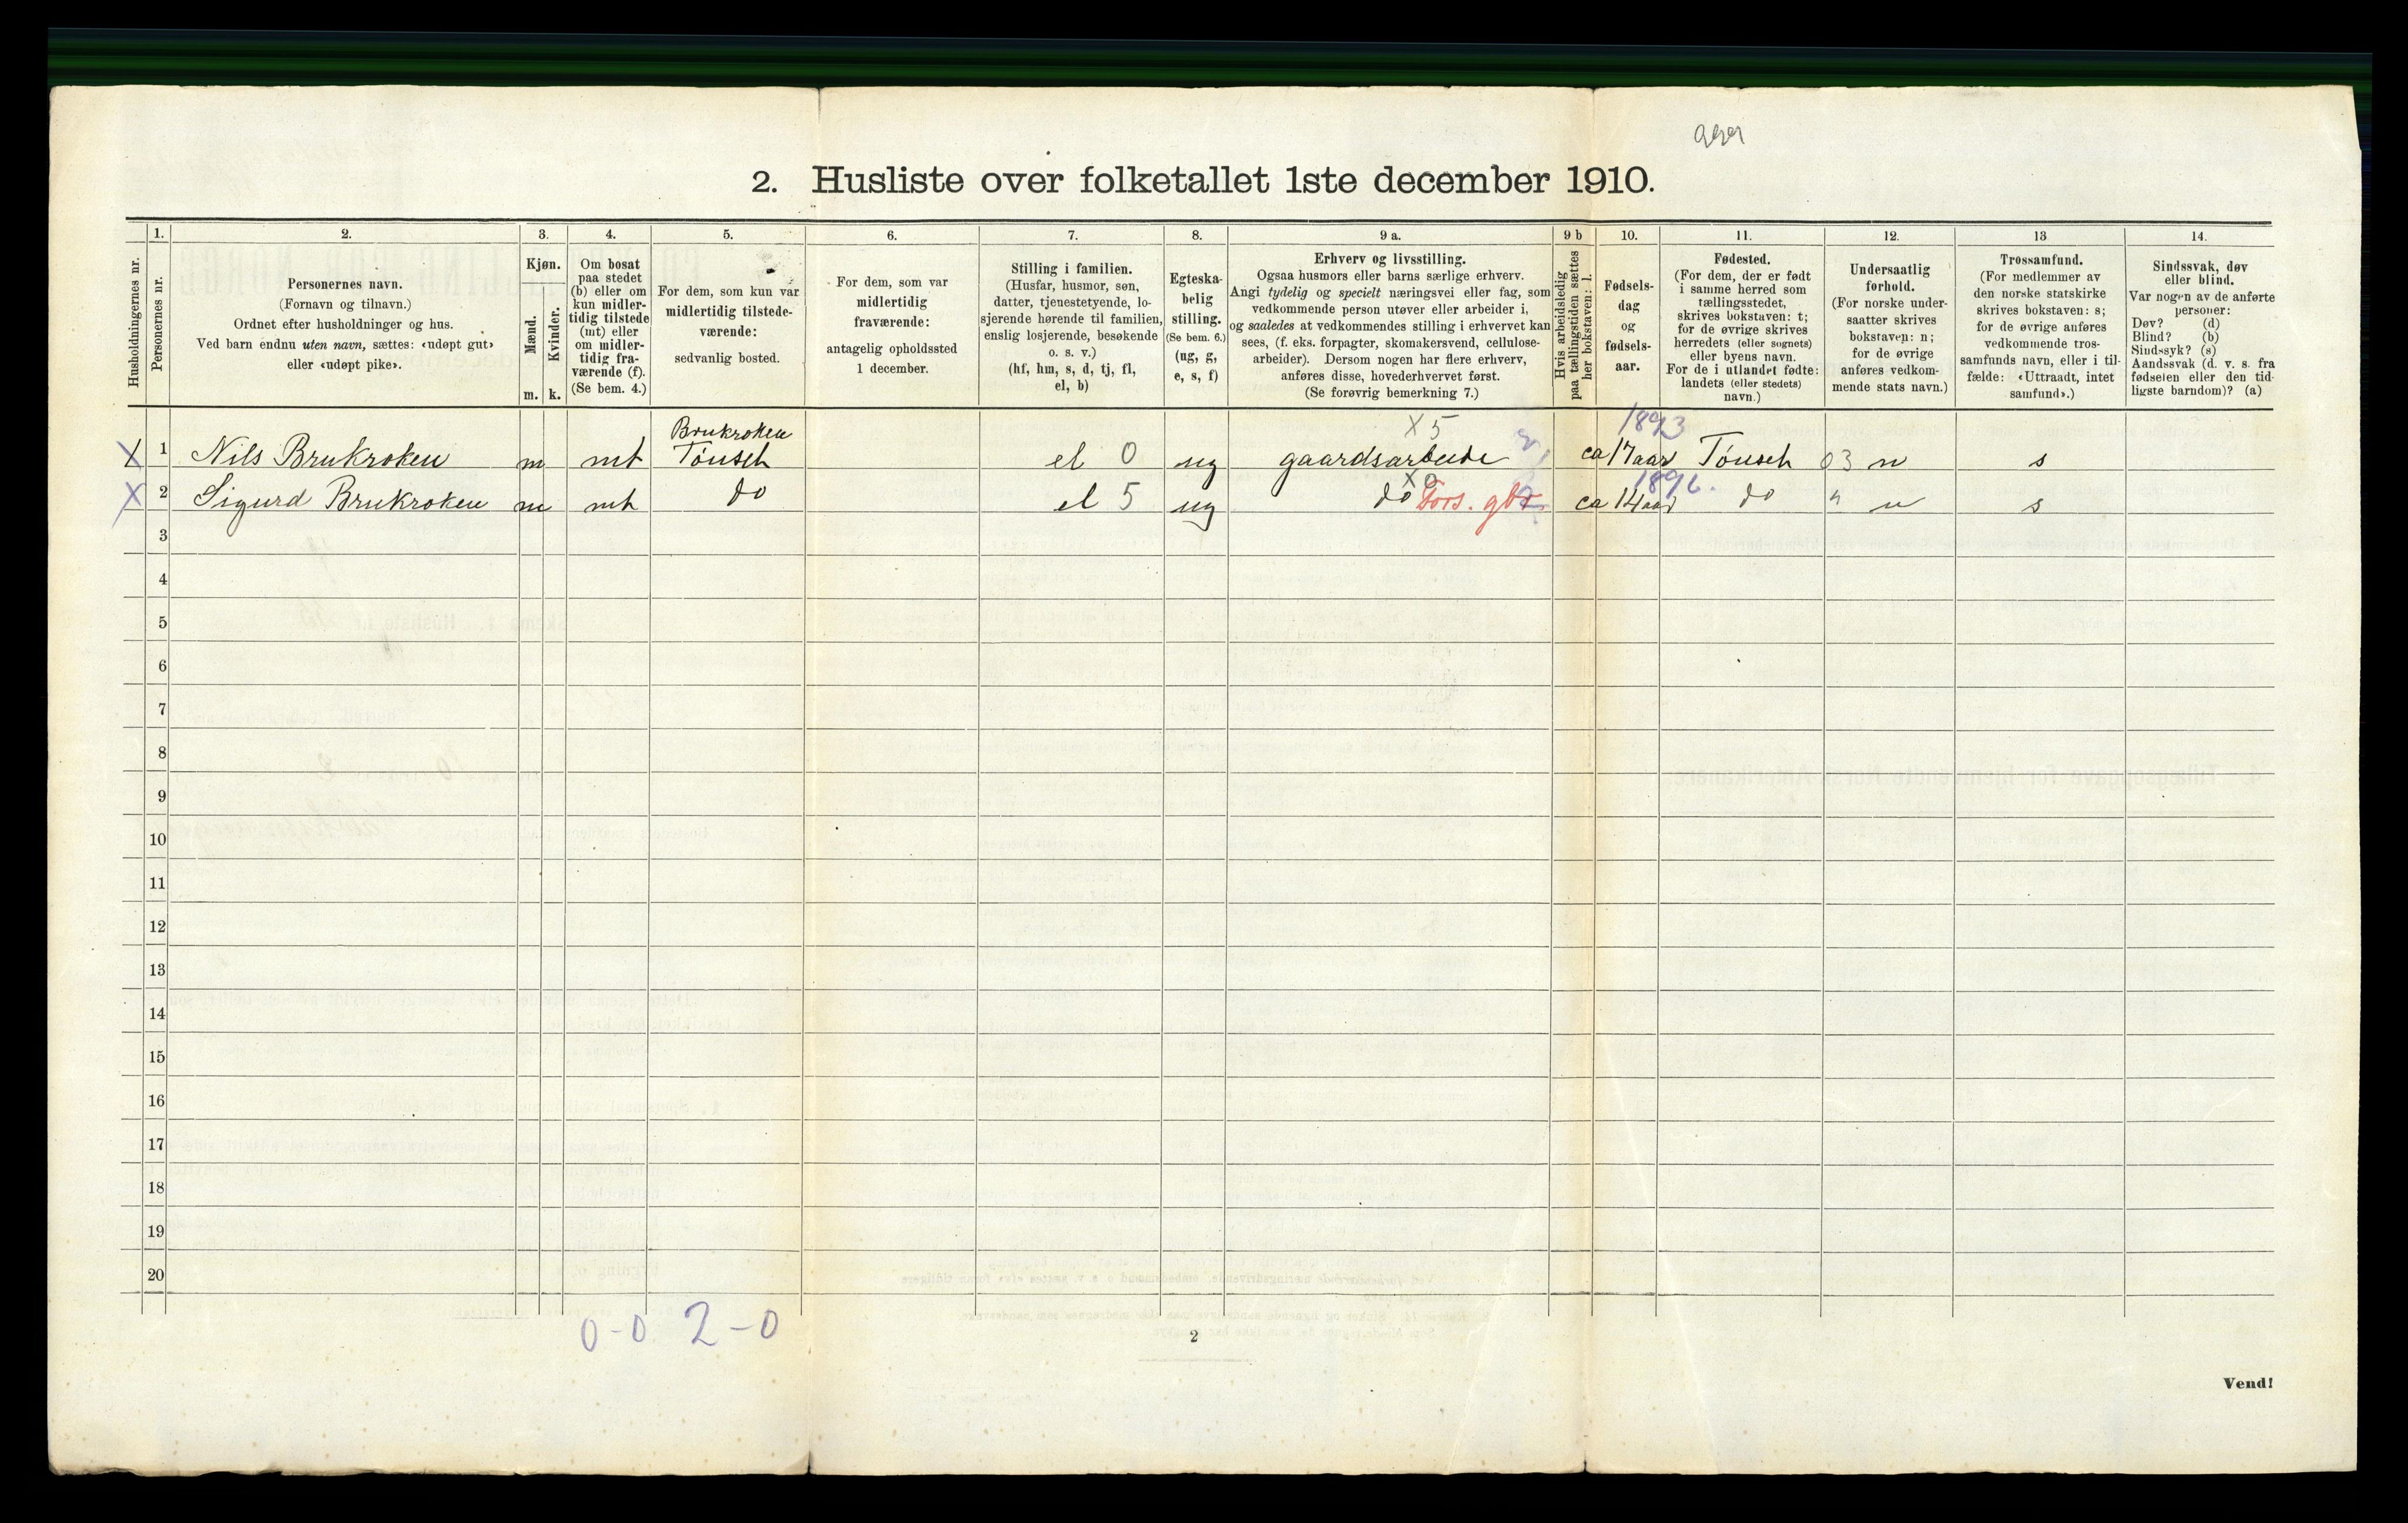 2. Husliste over folketallet 1ste december 1910.
Husholdningernes nr.
1.
Personernes nr.
2.
Personernes navn.
(Fornavn og tilnavn.)
Ordnet efter husholdninger og hus.
Ved barn endnu uten navn, sættes: «udøpt gut»
eller «udøpt pike».
3.
Kjøn.
Mænd.
Kvinder.
m. k.
4.
Om bosat
paa stedet
(b) eller om
kun midler-
tidig tilstede
(mt) eller
om midler-
tidig fra-
værende (f).
(Se bem. 4.)
5.
For dem, som kun var
midlertidig tilstede-
værende:
sedvanlig bosted.
6.
For dem, som var
midlertidig
fraværende:
antagelig opholdssted
1 december.
7.
Stilling i familien.
(Husfar, husmor, søn,
datter, tjenestetyende, lo-
sjerende hørende til familien,
enslig losjerende, besøkende
o. s. v.)
(hf, hm, s, d, tj, fl,
el, b)
8.
Egteska-
belig
stilling.
(Se bem. 6.)
(ug, g,
e, s, f)
9 a.
Erhverv og livsstilling.
Ogsaa husmors eller barns særlige erhverv.
Angi tydelig og specielt næringsvei eller fag, som
vedkommende person utøver eller arbeider i,
og saaledes at vedkommendes stilling i erhvervet kan
sees, (f. eks. forpagter, skomakersvend, cellulose-
arbeider). Dersom nogen har flere erhverv,
anføres disse, hovederhvervet først.
(Se forøvrig bemerkning 7.)
9 b
Hvis arbeidsledig
paa tællingstiden sættes
her bokstaven: l.
10.
Fødsels-
dag
og
fødsels-
aar.
11.
Fødested.
(For dem, der er født
i samme herred som
tællingsstedet,
skrives bokstaven: t;
for de øvrige skrives
herredets (eller sognets)
eller byens navn.
For de i utlandet fødte:
landets (eller stedets)
navn.)
12.
Undersaatlig
forhold.
(For norske under-
saatter skrives
bokstaven: n;
for de øvrige
anføres vedkom-
mende stats navn.)
13
Trossamfund.
(For medlemmer av
den norske statskirke
skrives bokstaven: s;
for de øvrige anføres
vedkommende tros-
samfunds navn, eller i til-
fælde: «Uttraadt, intet
samfund».)
14.
Sindssvak, døv
eller blind.
Var nogen av de anførte
personer:
Døv? (d)
Blind? (b)
Sindssyk? (s)
Aandssvak (d. v. s. fra
fødselen eller den tid-
ligste barndom)? (a)
Brukroken X 5 1893
X 1 Nils Brukroken m mt Tønset el 0 ug gaardsarbeide ca 17 aar Tønset 03 n s
X 0 1896.
X 2 Sigurd Brukroken m mt do el 5 ug do Fors. gbr ca 14 aar do " n s
3
4
5
6
7
8
9
10
11
12
13
14
15
16
17
18
19
20
0-0 2-0
2
Vend!